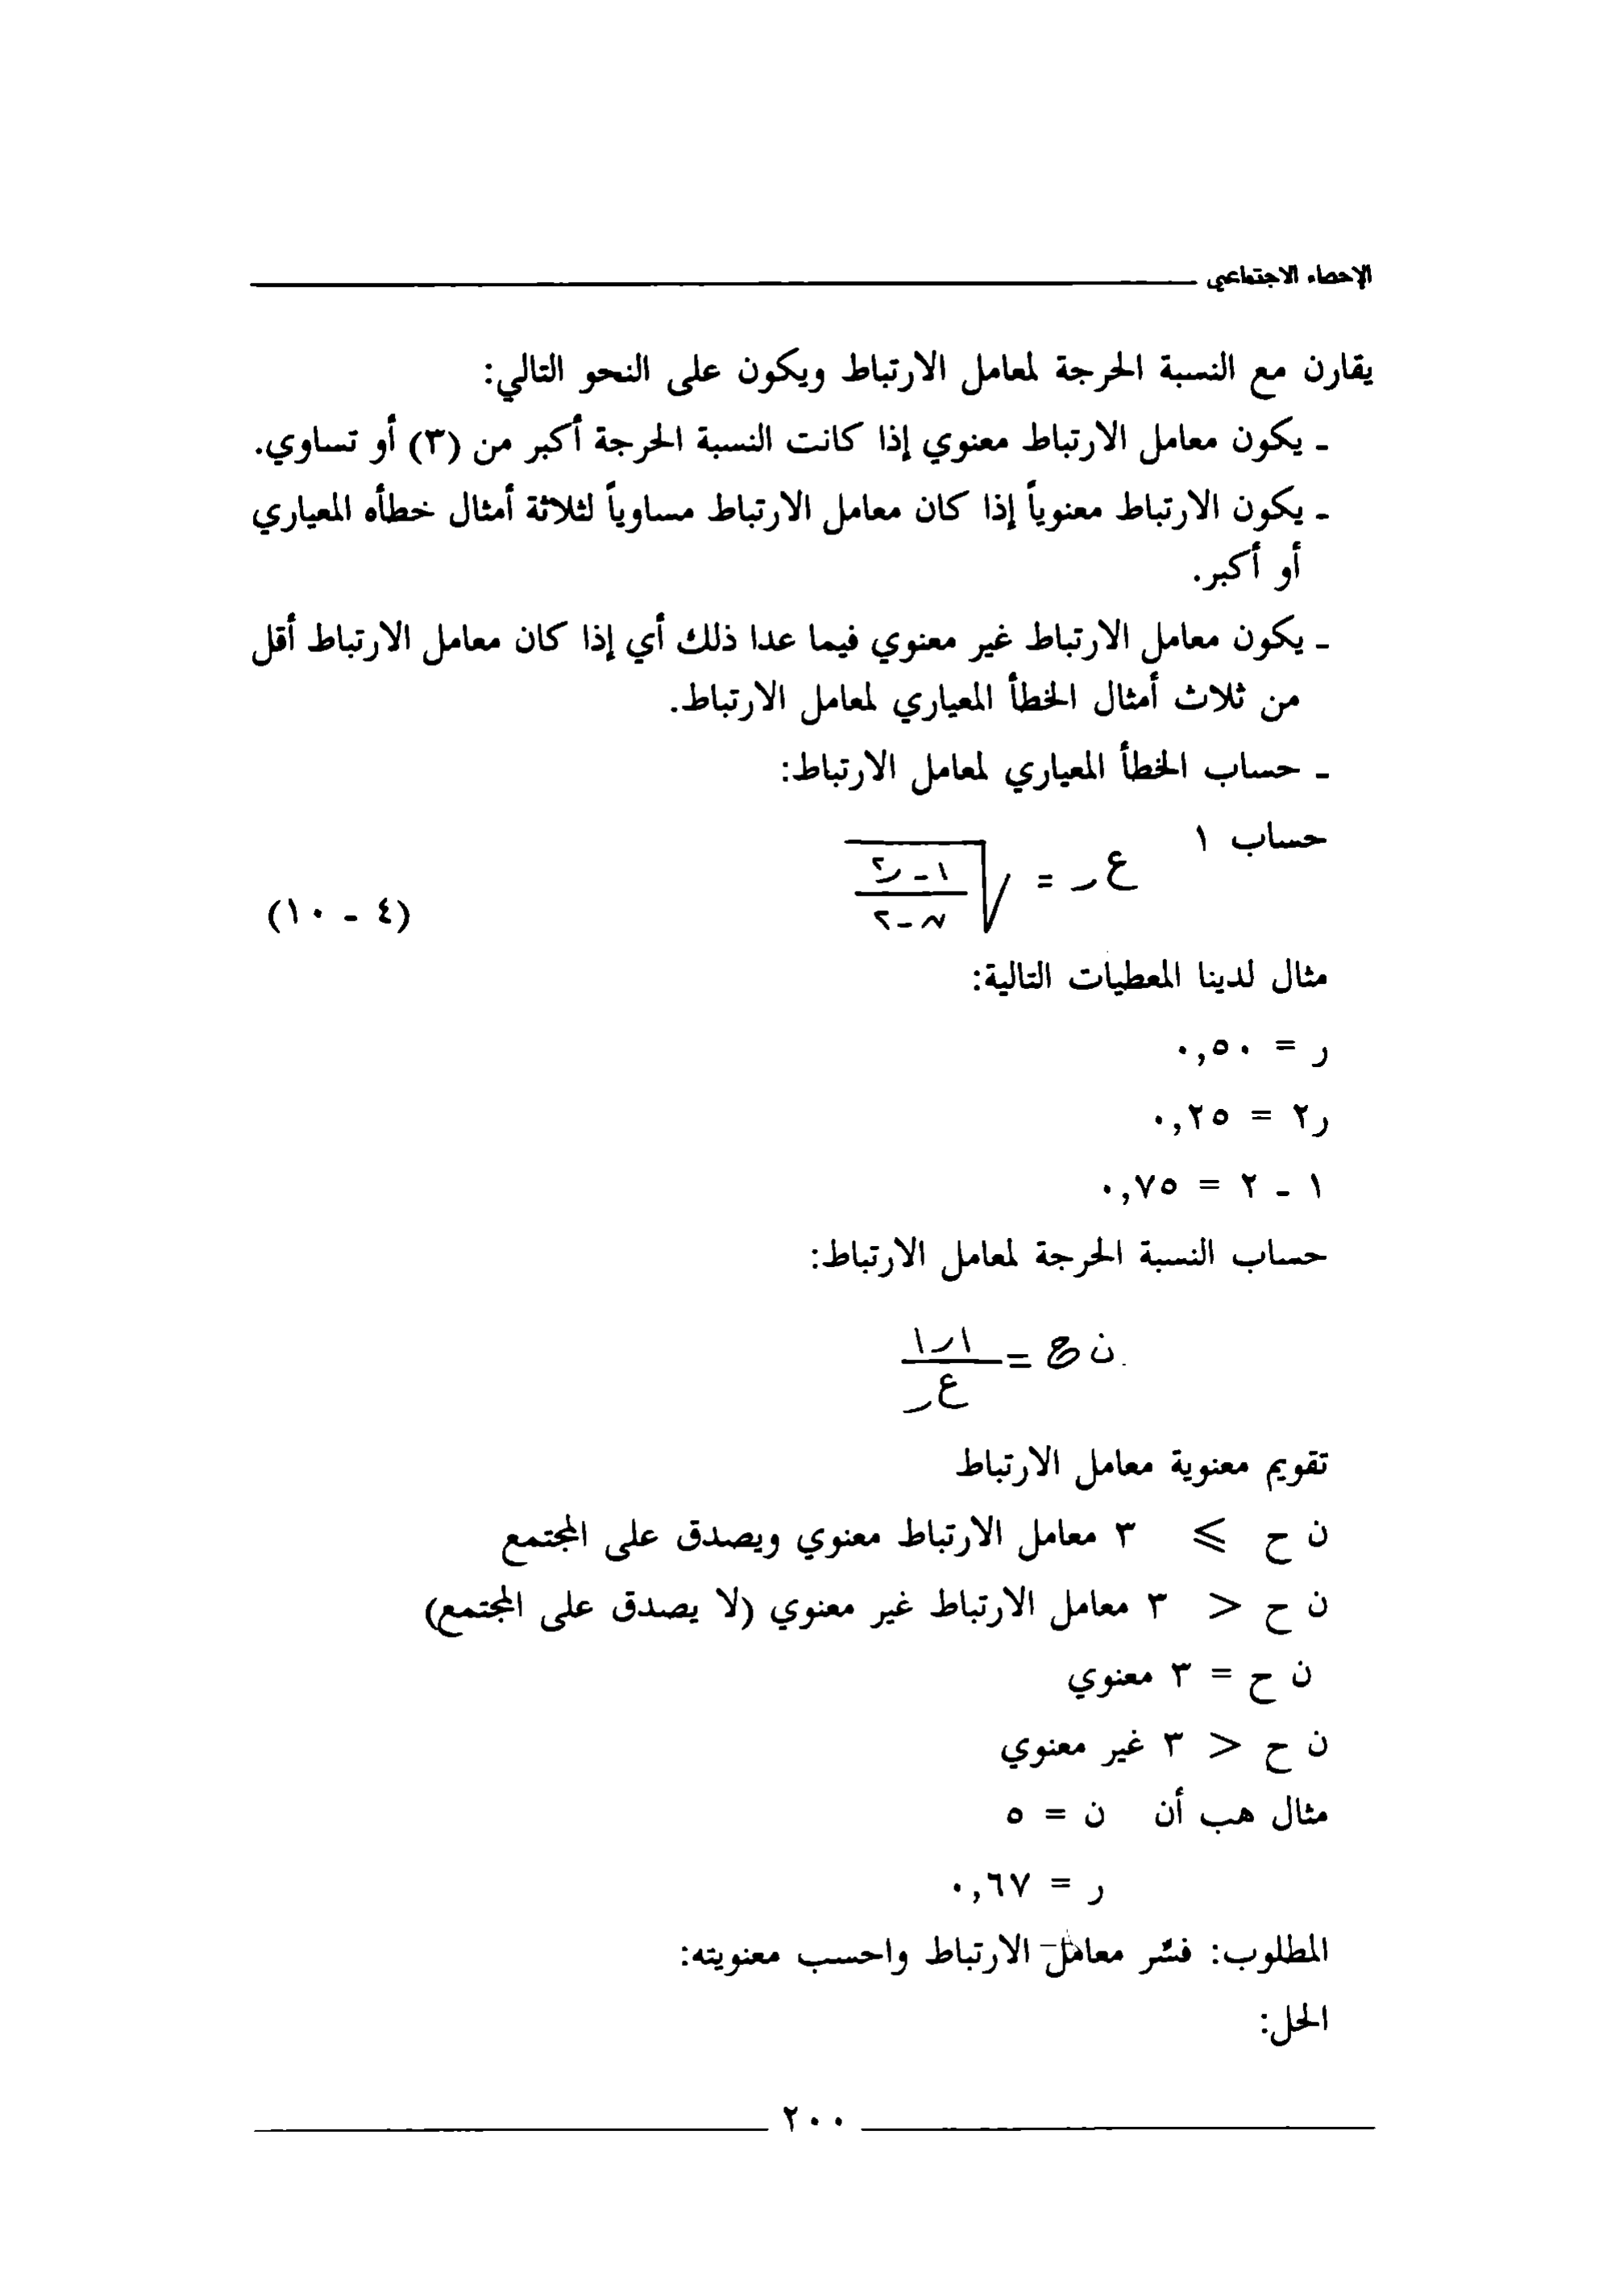 الإحصاء الاجتماعي
يقارن مع النسبة الحرجة لمعامل الارتباط ويكون على النحو التالي:
ـ يكون معامل الارتباط معنوي إذا كانت النسبة الحرجة أكبر من (٣) أو تساوي.
ـ يكون الارتباط معنوياً إذا كان معامل الارتباط مساوياً لثلاثة أمثال خطأه المعياري
أو أكبر.
ـ يكون معامل الارتباط غير معنوي فيما عدا ذلك أي إذا كان معامل الارتباط أقل
من ثلاث أمثال الخطأ المعياري لمعامل الارتباط.
ـ حساب الخطأ المعياري لمعامل الارتباط:
حساب ١
ع ر = √ ١ - ر٢
ن - ٢
(٤ - ١٠)
مثال لدينا المعطيات التالية:
ر = ٠,٥٠
ر٢ = ٠,٢٥
١ - ٢ = ٠,٧٥
حساب النسبة الحرجة لمعامل الارتباط:
ن ح = ا ر ا
ع ر
تقويم معنوية معامل الارتباط
ن ح ≥ ٣ معامل الارتباط معنوي ويصدق على المجتمع
ن ح < ٣ معامل الارتباط غير معنوي (لا يصدق على المجتمع)
ن ح = ٣ معنوي
ن ح < ٣ غير معنوي
مثال هب أن ن = ٥
ر = ٠,٦٧
المطلوب: فسّر معامل الارتباط واحسب معنويته:
الحل:
٢٠٠